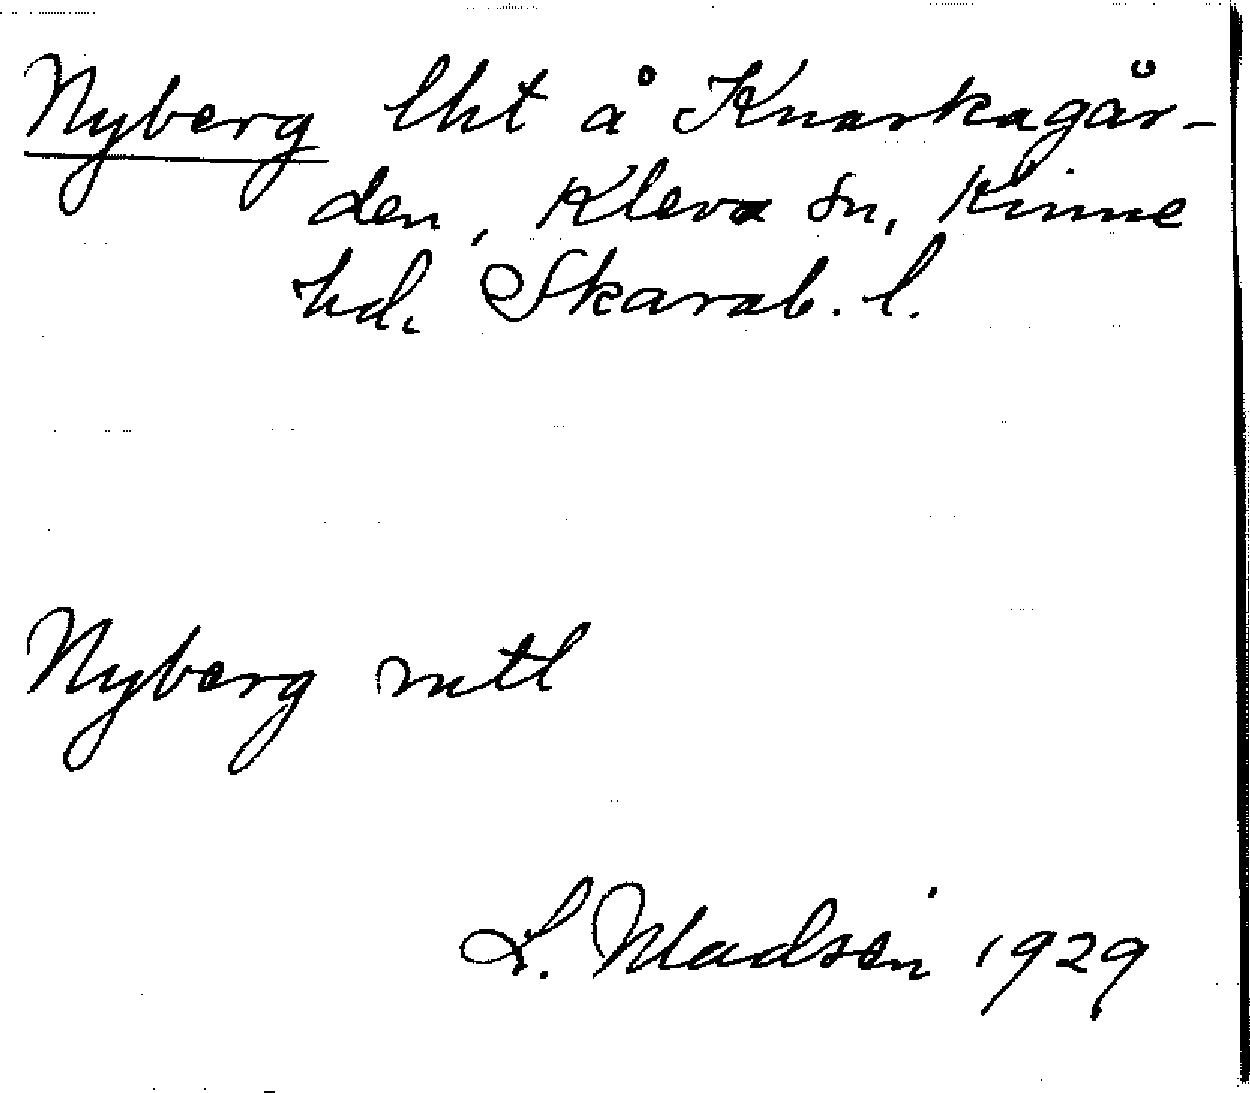 Nyberg lht å Knarkagår-
den, Kleva sn, Kinne
hd. Skarab. l.
Nyberg mtl
L. Madsén 1929